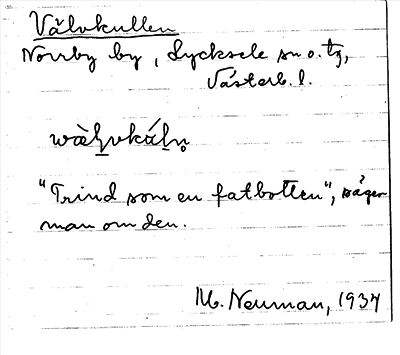 Välvkullen
Norrby by, Lycksele sn o. tg,
Västerb. l.
"Trind som en fatbotten", säger
man om den.
M. Neuman, 1934